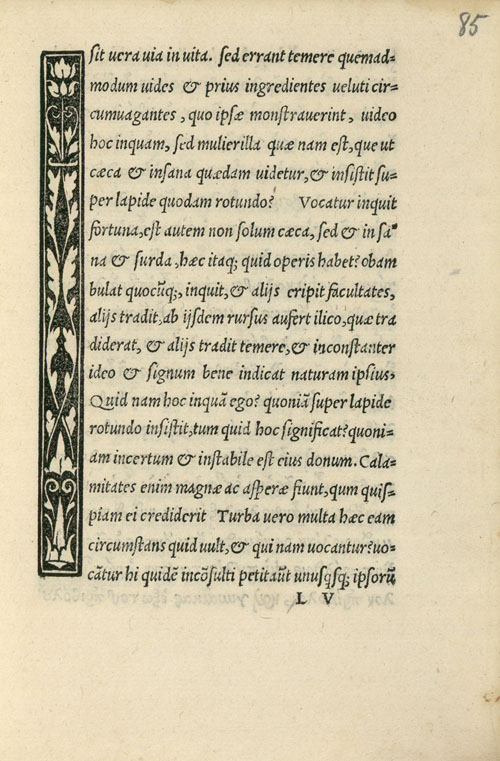 85
sit uera uia in uita. sed errant temere quemad=
modum uides & prius ingredientes ueluti cir=
cumuagantes, quo ipsæ monstrauerint, uideo
hoc inquam, sed mulierilla quæ nam est, que ut
cæca & insana quædam uidetur, & insistit su=
per lapide quodam rotundo? Vocatur inquit
fortuna, est autem non solum cæca, sed & in sa=
na & surda, hæc itaq; quid operis habet? obam
bulat quocūq;, inquit, & alijs eripit facultates,
alijs tradit, ab ijsdem rursus aufert ilico, quæ tra
diderat, & alijs tradit temere, & inconstanter
ideo & signum bene indicat naturam ipsius,
Quid nam hoc inquā ego? quoniā super lapide
rotundo insistit, tum quid hoc significat? quoni=
am incertum & instabile est eius donum. Cala=
mitates enim magnæ ac asperæ fiunt, qum quis=
piam ei crediderit Turba uero multa hæc eam
circumstans quid uult, & qui nam uocantur? uo=
cātur hi quidē incōsulti petitaūt unusqsq; ipsorū
L V